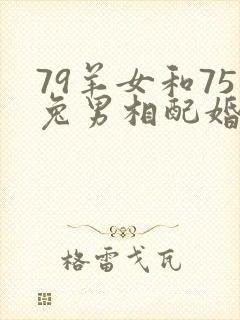 79羊女和75
兔男相配婚
格雷戈瓦